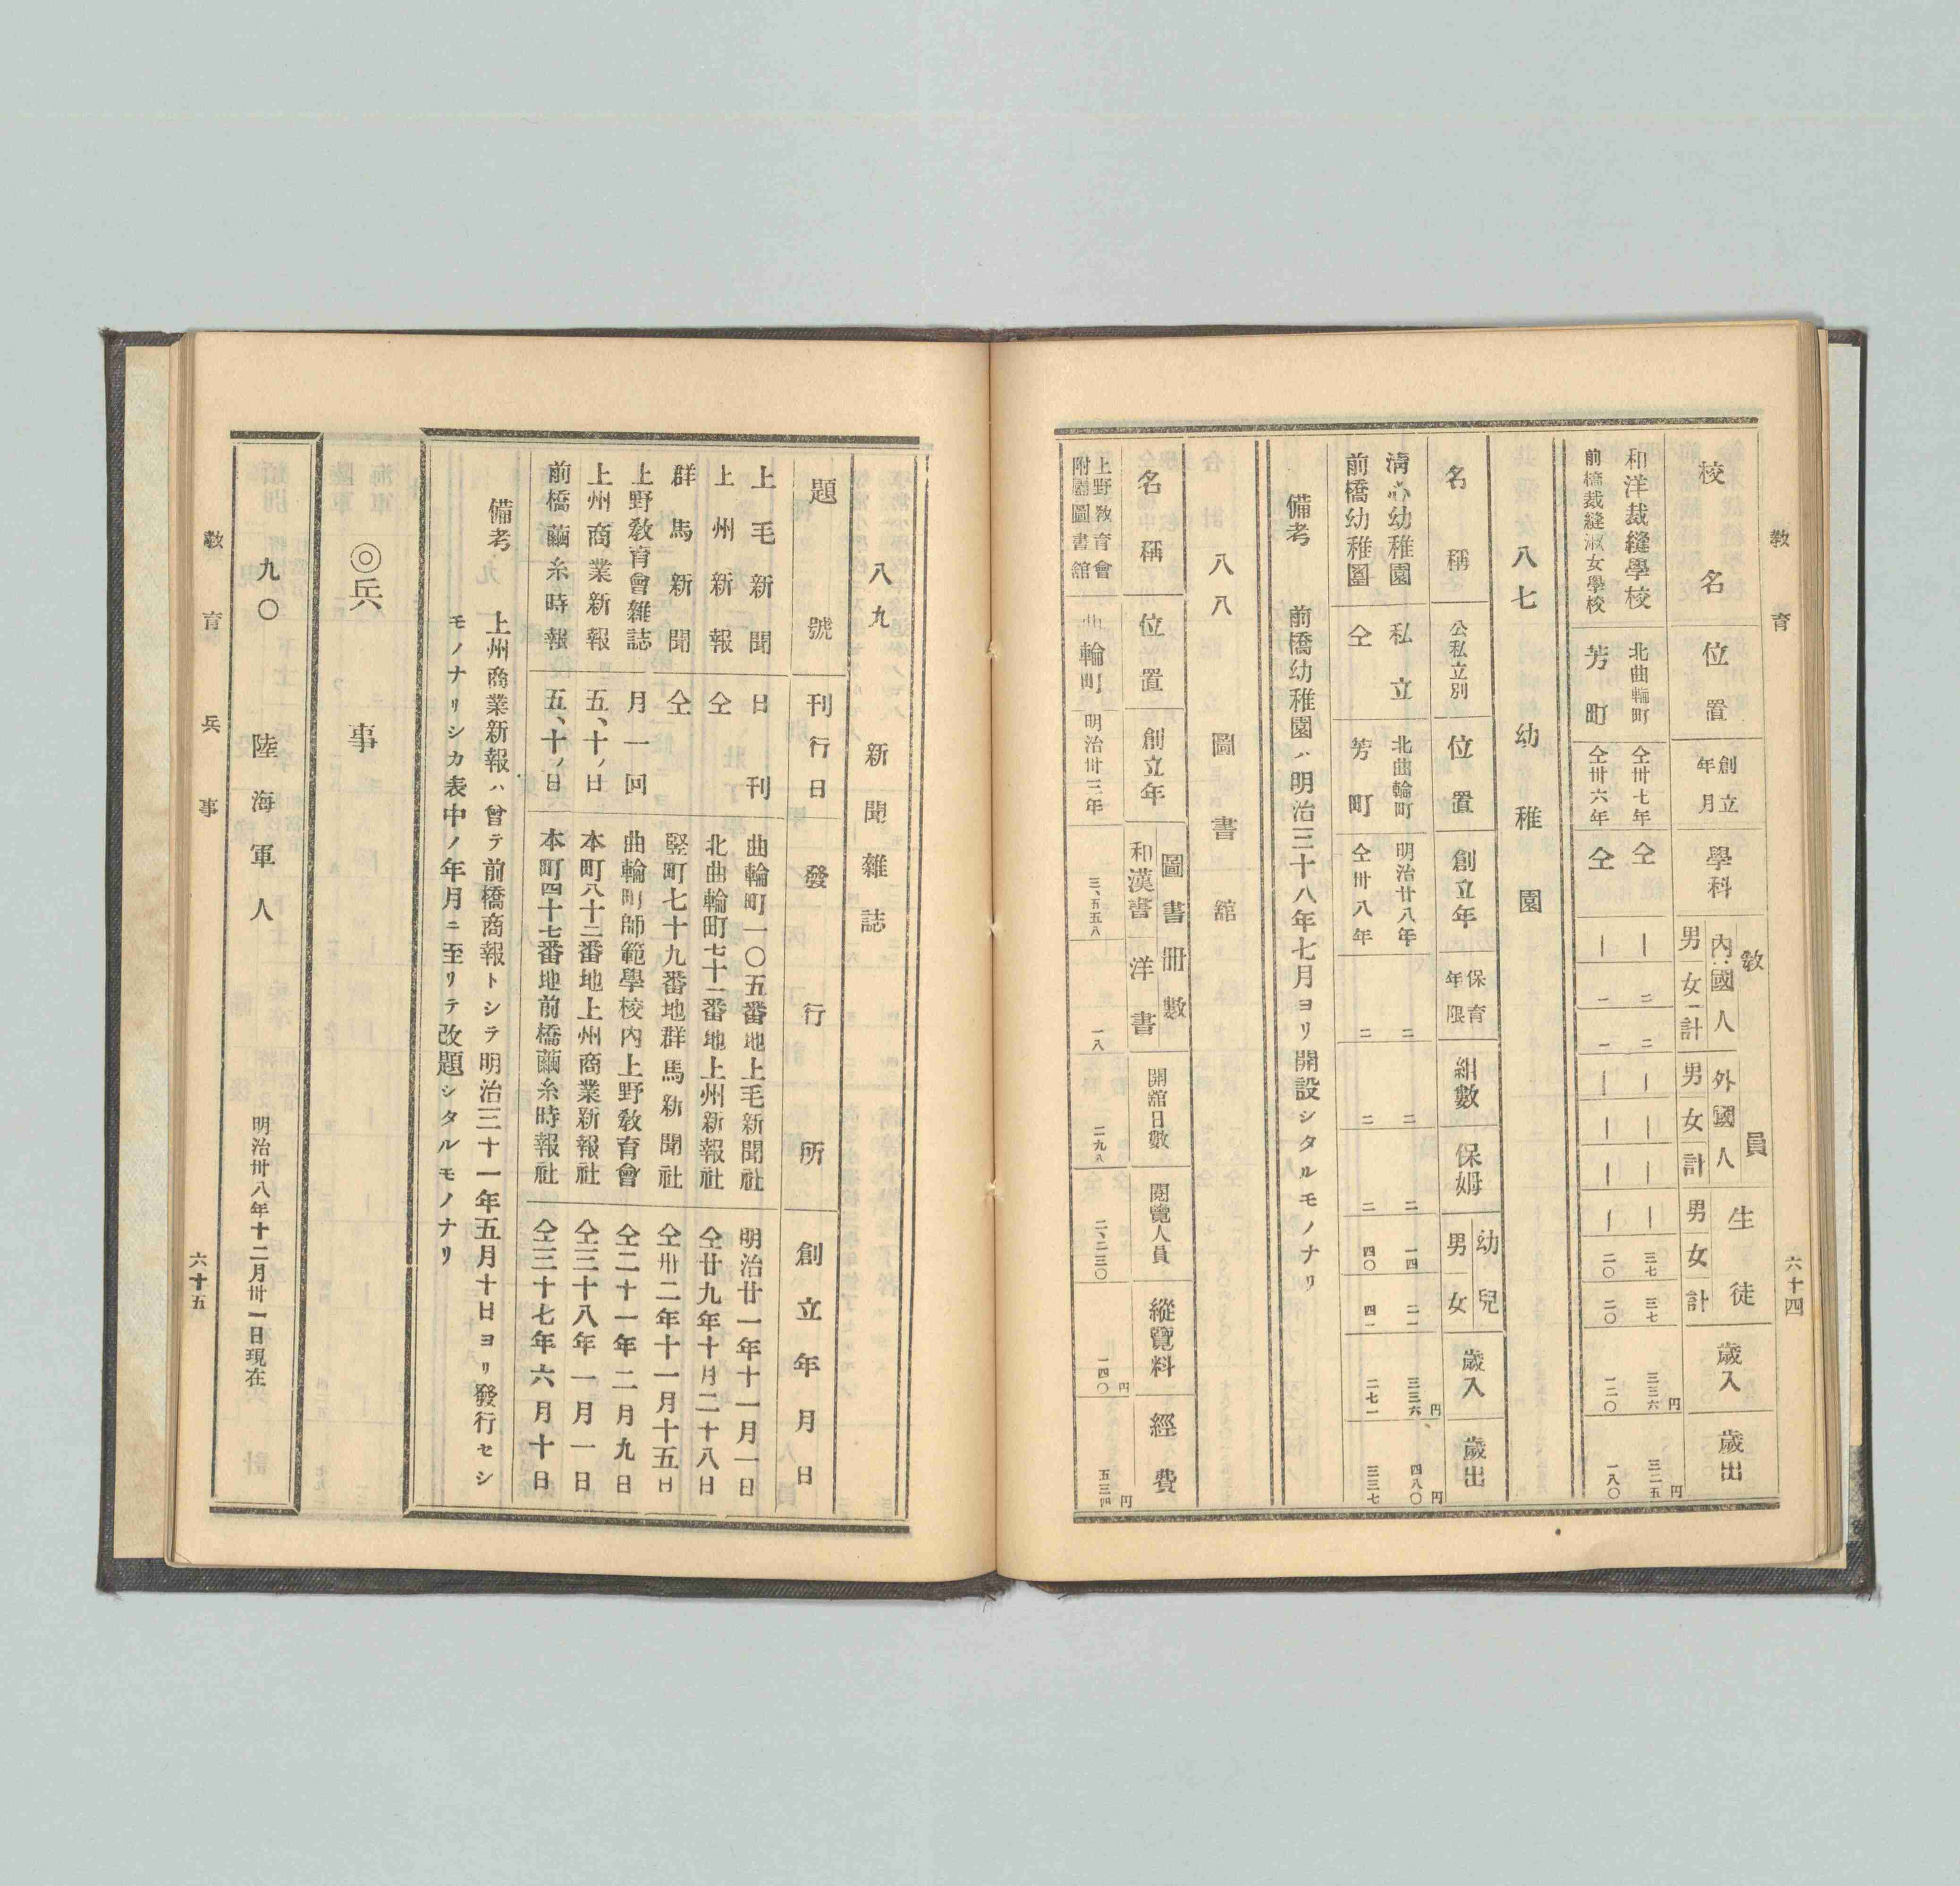 教育
六十四
校名 位置 創立年月 學科 教員 內國人 男 女 計 外國人 男 女 計 生徒 男 女 計 歲入 歲出
和洋裁縫學校 北曲輪町 仝卅七年 仝 ー 二 二 ー ー ー ー 三七 三七 三三六円 三二五円
前橋裁縫淑女學校 芳町 仝卅六年 仝 ー 一 一 ー ー ー ー 二〇 二〇 一二〇 一八〇
八七 幼稚園
名稱 公私立別 位置 創立年 保育年限 組數 保姆 幼兒 男 女 歲入 歲出
淸心幼稚園 私立 北曲輪町 明治廿八年 二 二 二 一四 二一 三三六円 四八〇円
前橋幼稚園 仝 芳町 仝卅八年 二 二 二 四〇 四一 二七一 三三七
備考 前橋幼稚園ハ明治三十八年七月ヨリ開設シタルモノナリ
八八 圖書舘
名稱 位置 創立年 圖書冊數 和漢書 洋書 開舘日數 閱覽人員 縱覽料 經費
上野敎育會附屬圖書舘 曲輪町 明治卅三年 三、五五八 一八 二九八 二、二三〇 一四〇円 五三四円
八九 新聞雜誌
題號 刊行日 發行所 創立年月日
上毛新聞 日刊 曲輪町一〇五番地上毛新聞社 明治廿一年十一月一日
上州新報 仝 北曲輪町七十一番地上州新報社 仝廿九年十月二十八日
群馬新聞 仝 竪町七十九番地群馬新聞社 仝卅二年十一月十五日
上野敎育會雜誌 月一回 曲輪町師範學校內上野敎育會 仝二十一年二月九日
上州商業新報 五、十ノ日 本町八十二番地上州商業新報社 仝三十八年一月一日
前橋繭糸時報 五、十ノ日 本町四十七番地前橋繭糸時報社 仝三十七年六月十日
備考 上州商業新報ハ曾テ前橋商報トシテ明治三十一年五月十日ヨリ發行セシ
モノナリシカ表中ノ年月ニ至リテ改題シタルモノナリ
◎兵事
九〇 陸海軍人 明治卅八年十二月卅一日現在
敎育 兵事
六十五